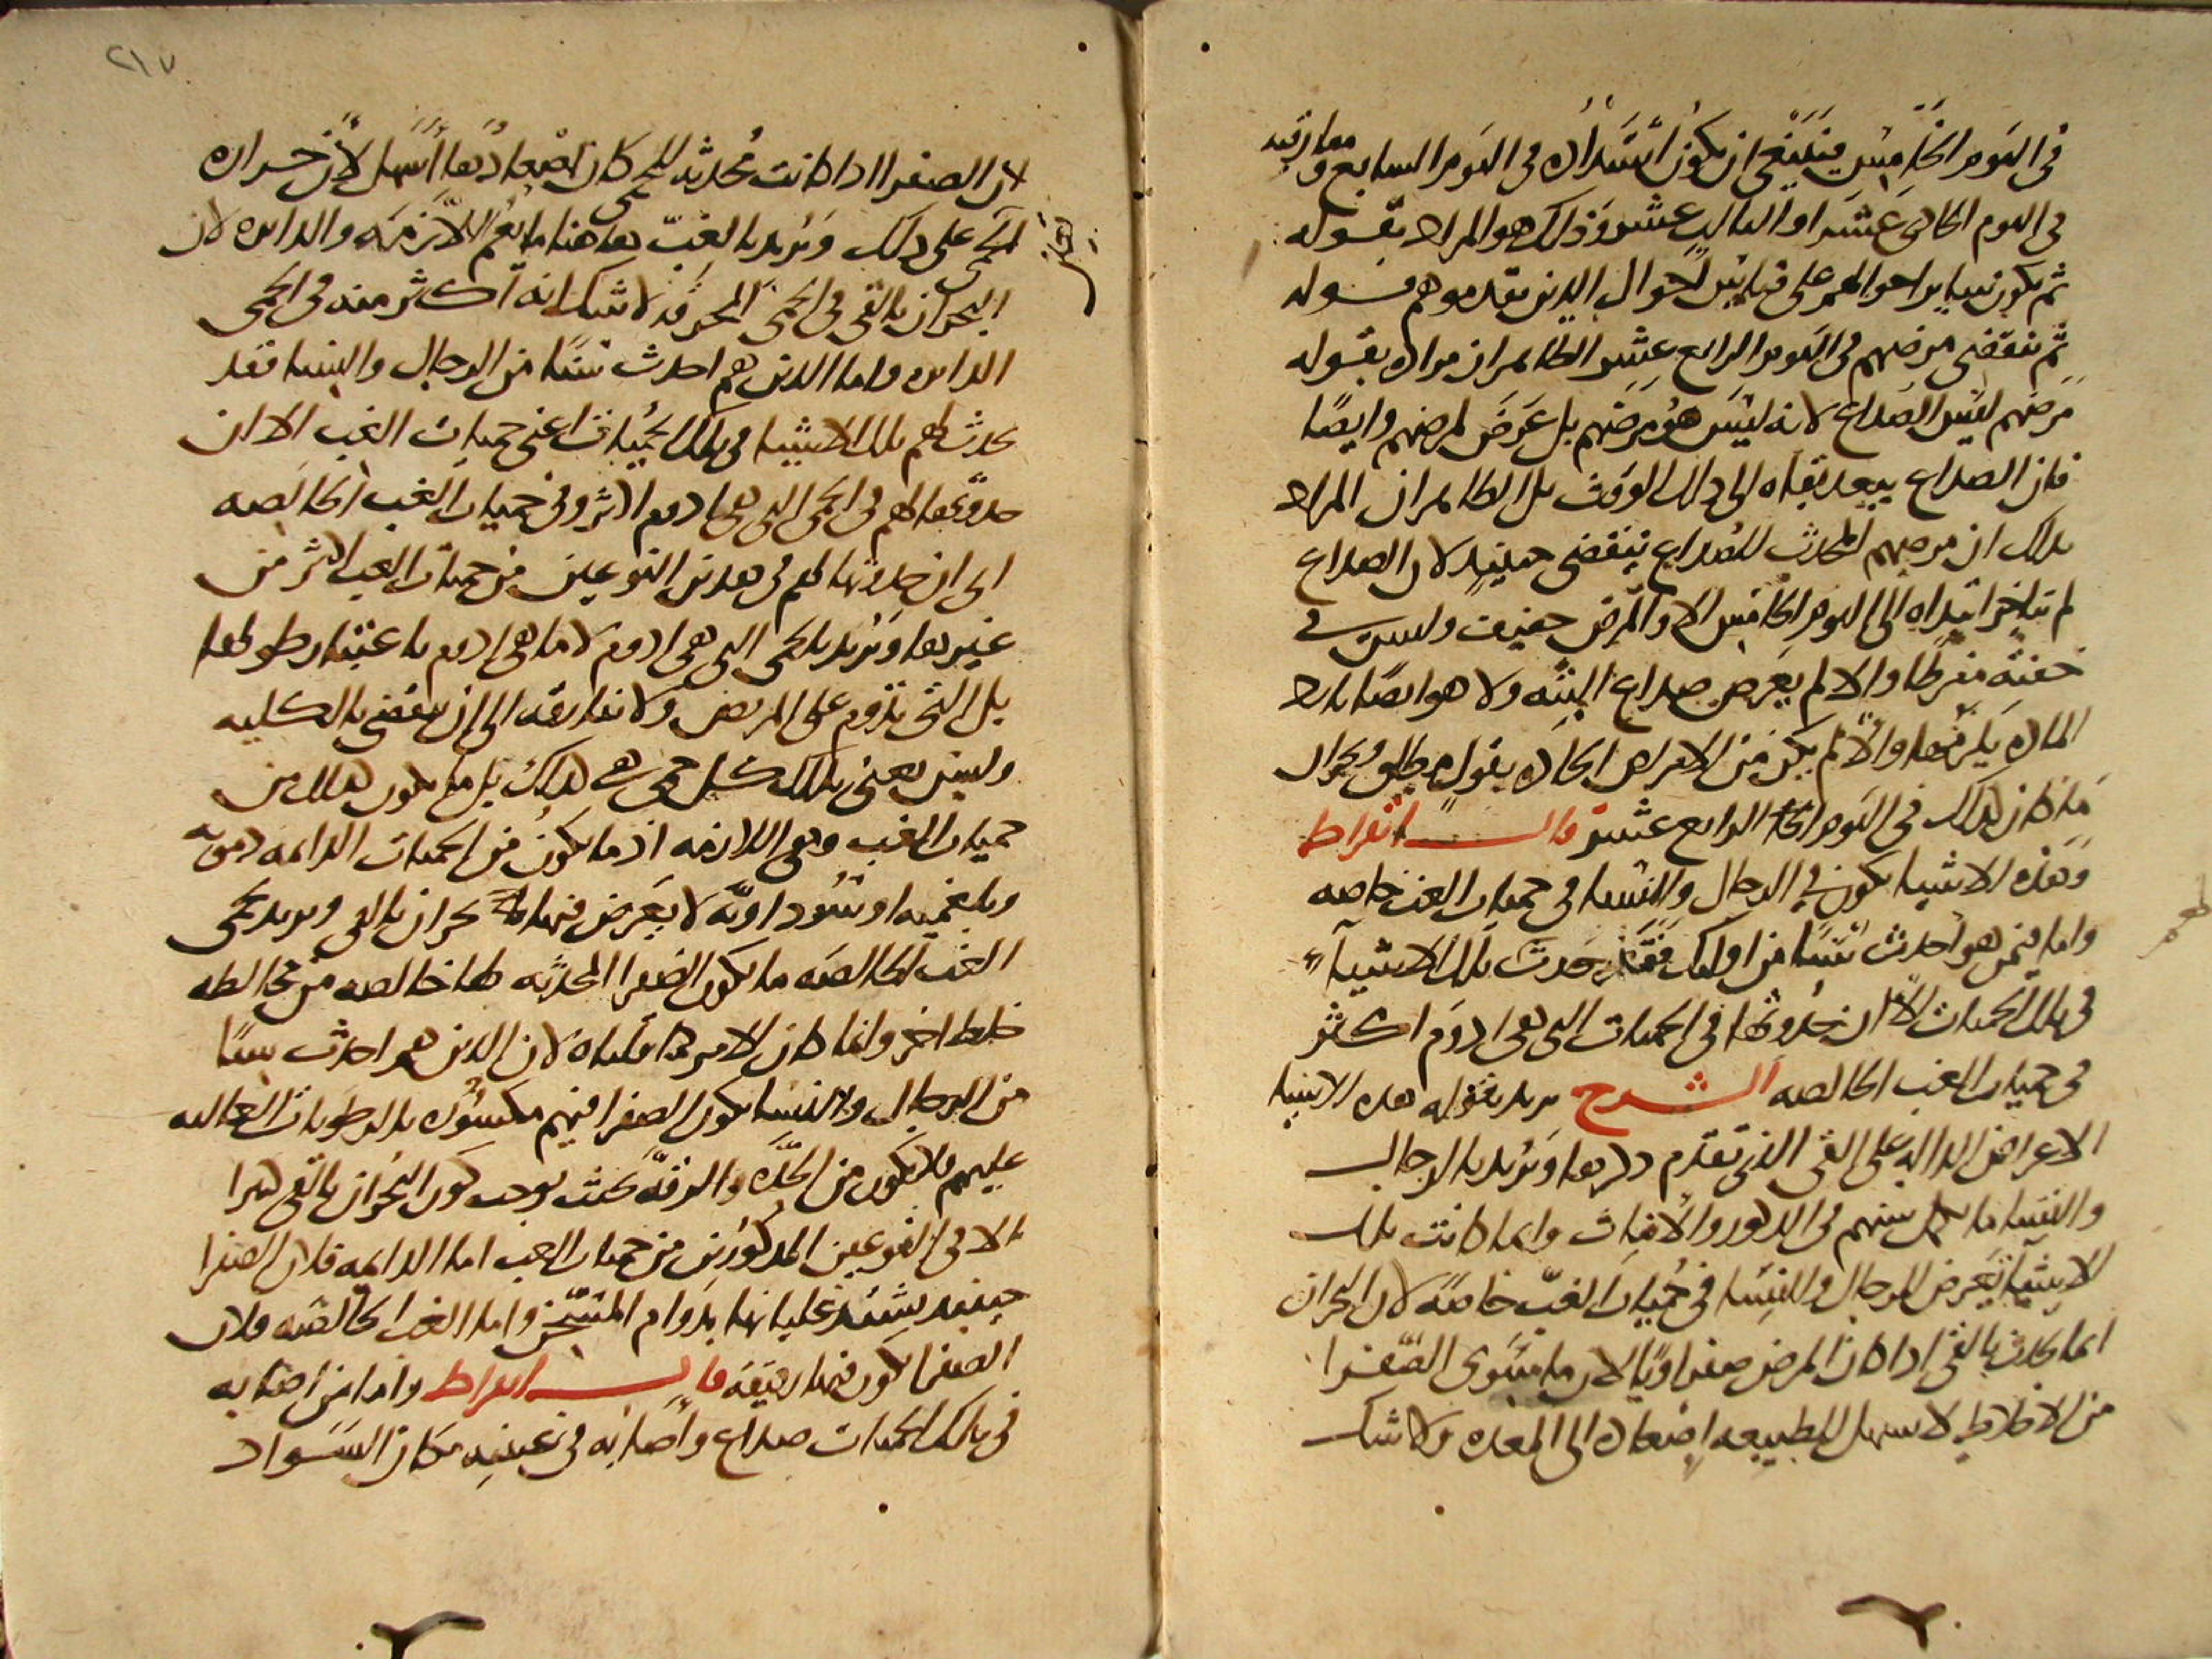 في اليوم الخامس فينبغي ان يكون اشتداده في اليوم السابع ومفارقته
في اليوم الحادي عشر او الثالث عشر وذلك هو المراد بقوله
ثم تنقضي مرضهم في اليوم الرابع عشر الظاهر ان مراده بقوله
مرضهم ليس الصداع لانه ليس هو مرضهم بل عرض لمرضهم وايضا
فان الصداع يبعد بقاه الى ذلك الوقت بل الظاهر ان المراد
بذلك ان مرضهم المحدث للصداع ينقضي حينيذ لان الصداع
لم يتاخر ابتداه الى اليوم الخامس الا والمرض خفيف وليست
خفته مفرطا والا لم يعرض صداع البته ولا هو ايضا بارد
الماده والا لم يكن من الامراض الحاده
فان كان كذلك في اليوم الرابع عشر قال ابقراط
وهذه الاشيا تكون في الرجال والنسا في حميات الغب خاصه
واما فيمن هو احدث سنا من اوليك فقد حدث تلك الاشيا
في تلك الحميات الا ان حدوثها في الحميات التي هي ادوم اكثر
في حميات الغب الخالصه الشرح يريد بقوله هذه الاشيا
الاعراض الداله على القي الذي تقدم ذكرها ويريد بالرجال
والنسا ما سنهم في الذكور والاناث وانما كانت تلك
الاشيا تعرض للرجال والنسا في حميات الغب خاصة لان البحران
انما يحدث بالقي اذا كان المرض صفراويا لان ما سوى الصفرا
من الاخلاط لا يسهل للطبيعه اصعاده الى المعده ولا شك
٢١٧
لان الصفرا اذا كانت محدثه للحمى كان اصعادها اسهل لان حراره
الحمى على ذلك ويريد بالغب هاهنا ما يعم اللازمه والدايره لان
البحران بالقي في الحمى المحرقه لا شك انه اكثر منه في الحمى
الدايره واما الذين هم احدث سنا من الرجال والنسا فقد
يحدث لهم تلك الاشيا في تلك الحميات اعني حميات الغب الا ان
حدوثها لهم في الحمى التي هي ادوم اكثر وفي حميات الغب الخالصه
اي ان حدوثها لهم في هذين النوعين من حميات الغب اكثر من
غيرها ويريد بالحمى التي هي ادوم لا ما هي ادوم باعتبار طولها
بل التي تدوم على المريض ولا تفارقه الى ان ينقضي بالكليه
وليس يعني بذلك كل حمى هي كذلك بل ما يكون كذلك من
حميات الغب وهي اللازمه اذ ما يكون من الحميات الدايمه دمويه
وبلغميه او سوداويه لا يعرض فيها بحران بالقي ويريد بحمى
الغب الخالصه ما يكون الصفرا المحدثه لها خالصه من مخالطه
خلط اخر وانما كان الامر كما قلناه لان الذين هم احدث سنا
من الرجال والنسا يكون الصفرا فيهم مكسوره بالرطوبات الغالبه
عليهم فلا يكون من الحده والرقه بحيث يوجب كون البحران بالقي كثيرا
الا في النوعين المذكورين من حميات الغب اما الدايمه فلان الصفرا
حينيذ يشتد غليانها بدوام التسخن واما الغب الخالصه فلان
الصفرا تكون فيها رقيقه قال ابقراط واما من اصابه
في تلك الحميات صداع واصابه في عينيه مكان السواد